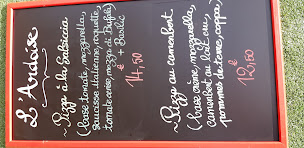 L'Ardoise
~ Pizza à la Salsiccia
(base tomate, mozzarella,
saucisse italienne, roquette,
tomate cerise, mozza di Bufala)
+ Basilic
14,50 €
~ Pizza au camembert
(base crème, mozzarella,
camembert au lait cru,
pommes de terre, coppa)
12,50 €